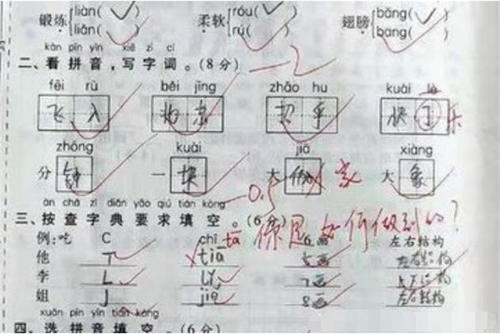 锻炼 liàn( ) liān( ) 柔软 róu( ) rú( ) 翅膀 bǎng( ) bang( )
kàn pīn yīn xiě zì cí
二、看拼音，写字词。(8分) -2
fēi rù běi jīng zhāo hu kuài lè
飞入 招乎 快 乐
zhōng kuài jiā xiàng
分钟 一块 大 家 大象
àn chá zì diǎn yāo qiú tián kòng -0.5
三、按查字典要求填空。(6分) 你是如何做到的?
例:吃 C chī tā 6画 左右结构
他 T tiā 5画 左右结构
李 L Lǐ 7画
姐 J jiě 8画 左右结构
xuǎn pīn yīn tián kòng
四、选拼音填空。